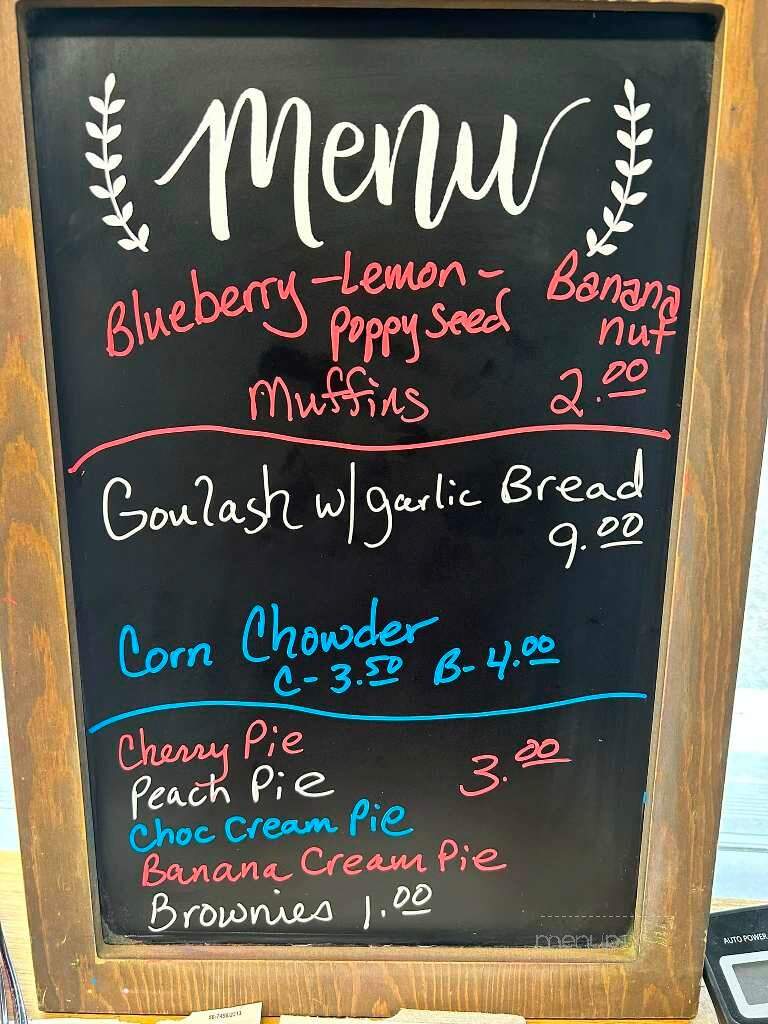 Menu
Blueberry - Lemon - Banana
Poppy Seed nut
Muffins 2.00
Goulash w/ garlic Bread
9.00
Corn Chowder
C- 3.50 B- 4.00
Cherry Pie
Peach Pie 3.00
Choc Cream Pie
Banana Cream Pie
Brownies 1.00
AUTO POWER